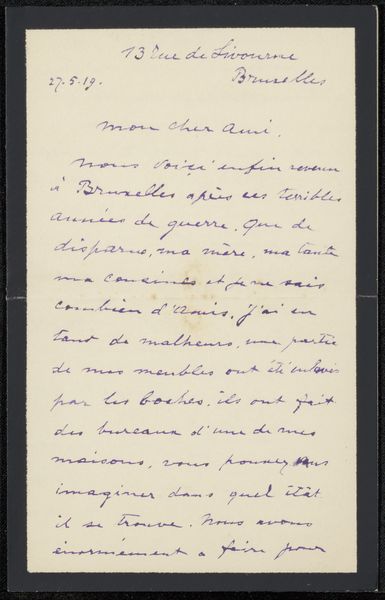 13 rue de Livourne
27-5-19. Bruxelles
mon cher Ami.
nous voiçi enfin revenu
à Bruxelles après ces terribles
années de guerre. que de
disparue, ma mère, ma tante
ma cousines et je ne sais
combien d'Amis, j'ai eu
tant de malheurs, une partie
de mes meubles ont été enlevés
par les boches. ils ont fait
des bureaux d'une de mes
maisons, vous pouvez
imaginer dans quel état
il se trouve. Nous avons
énormément a faire pour